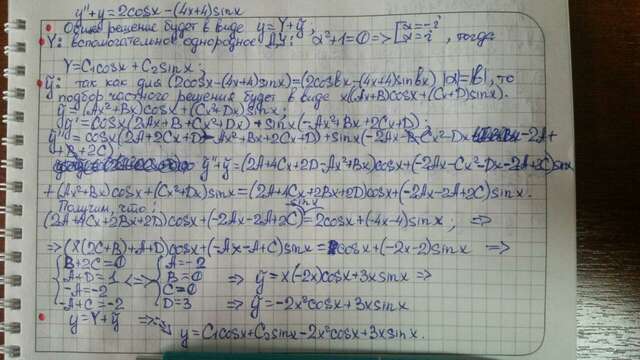 y''+y=2cosx-(4x+4)sinx
• Общее решение будет в виде y=Y+ỹ;
• Y: вспомогательное однородное ДУ: α²+1=0=>[α=-i α=i, тогда
Y=C₁cosx+C₂sinx;
• ỹ: так как для (2cosx-(4x+4)sinx)=(2cosbx-(4x+4)sinbx) |α|=|B|, то
подбор частного решения будет в виде x((Ax+B)cosx+(Cx+D)sinx).
ỹ=(Ax²+Bx)cosx+(Cx²+Dx)sinx;
ỹ'=cosx(2Ax+B+Cx²+Dx)+sinx(-Ax²+Bx+2Cx+D);
ỹ''=cosx(2A+2Cx+D-Ax²+Bx+2Cx+D)+sinx(-2Ax-B-Cx²-Dx -2A+
+B+2C)
ỹ''+ỹ=(2A+4Cx+2D-Ax²+Bx)cosx+(-2Ax-Cx²-Dx-2A+2C)sinx
+(Ax²+Bx)cosx+(Cx²+Dx)sinx=(2A+4Cx+2Bx+2D)cosx+(-2Ax-2A+2C)sinx.
Получим, что:
(2A+4Cx+2Bx+2D)cosx+(-2Ax-2A+2C)sinx=2cosx+(-4x-4)sinx; =>
=>(X(2C+B)+A+D)cosx+(-Ax-A+C)sinx=cosx+(-2x-2)sinx =>
{B+2C=0 {A=-2
A+D=1 <=> B=0 => ỹ=x(-2x)cosx+3xsinx =>
-A=-2 C=0
-A+C=-2 D=3 => ỹ=-2x²cosx+3xsinx
• y=Y+ỹ => y=C₁cosx+C₂sinx-2x²cosx+3xsinx.